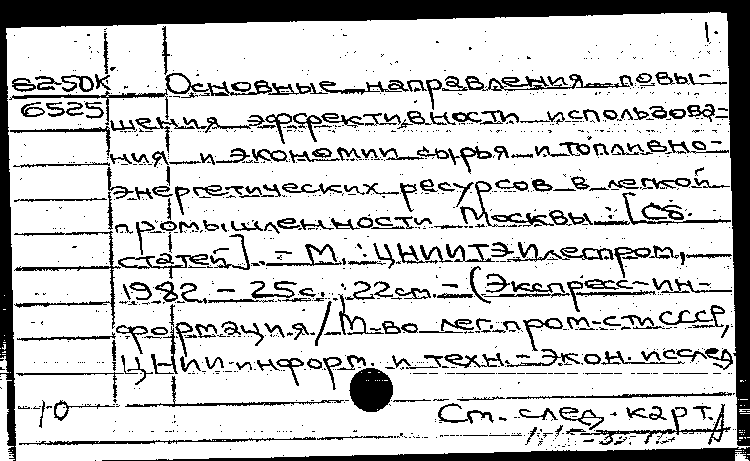 1.
82-50К Основные направления повы-
6525 шения эффективности использова-
ния и экономии сырья и топливно-
энергетических ресурсов в легкой
промышленности Москвы : [Сб.
статей]. - М. : ЦНИИТЭИлегпром,
1982. - 25с. ; 22см - (Экспресс-ин-
формация / М-во лег. пром-сти СССР,
ЦНИИ информ. и техн.-экон. исслед
10 Ст. след. карт.